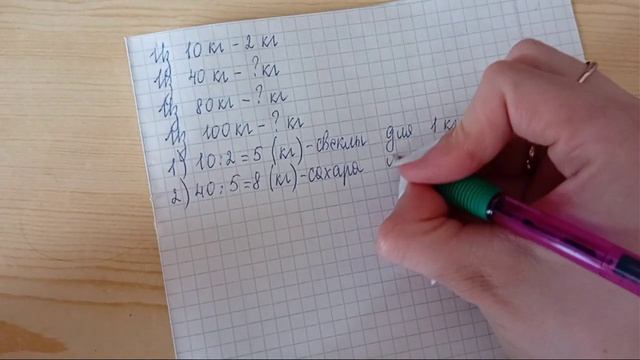 Из 10 кг - 2 кг
Из 40 кг - ? кг
Из 80 кг - ? кг
Из 100 кг - ? кг
1) 10 : 2 = 5 (кг) - свеклы для 1 кг
2) 40 : 5 = 8 (кг) - сахара